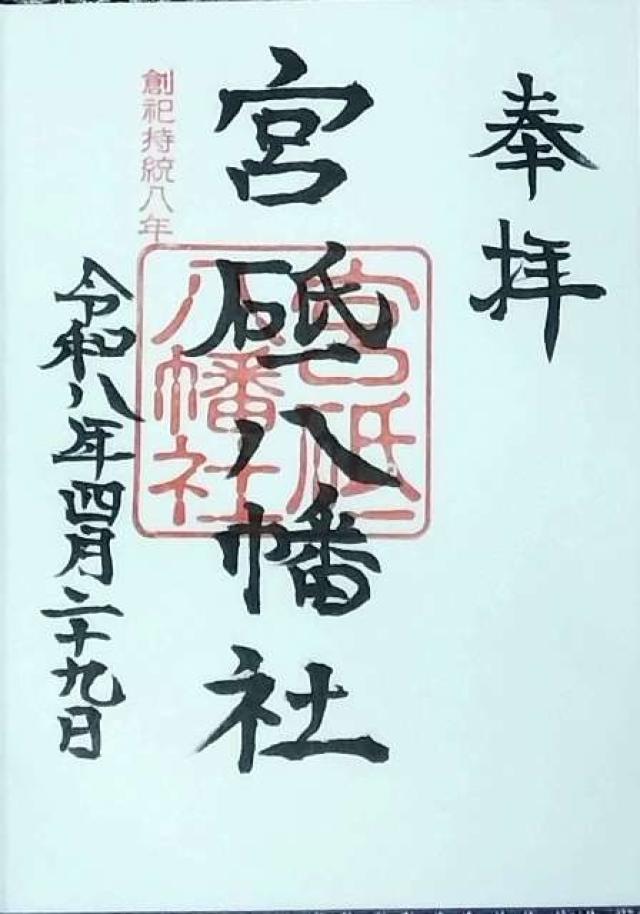 奉拝
宮砥八幡社
創祀持統八年
宮砥八幡社
令和八年四月二十九日